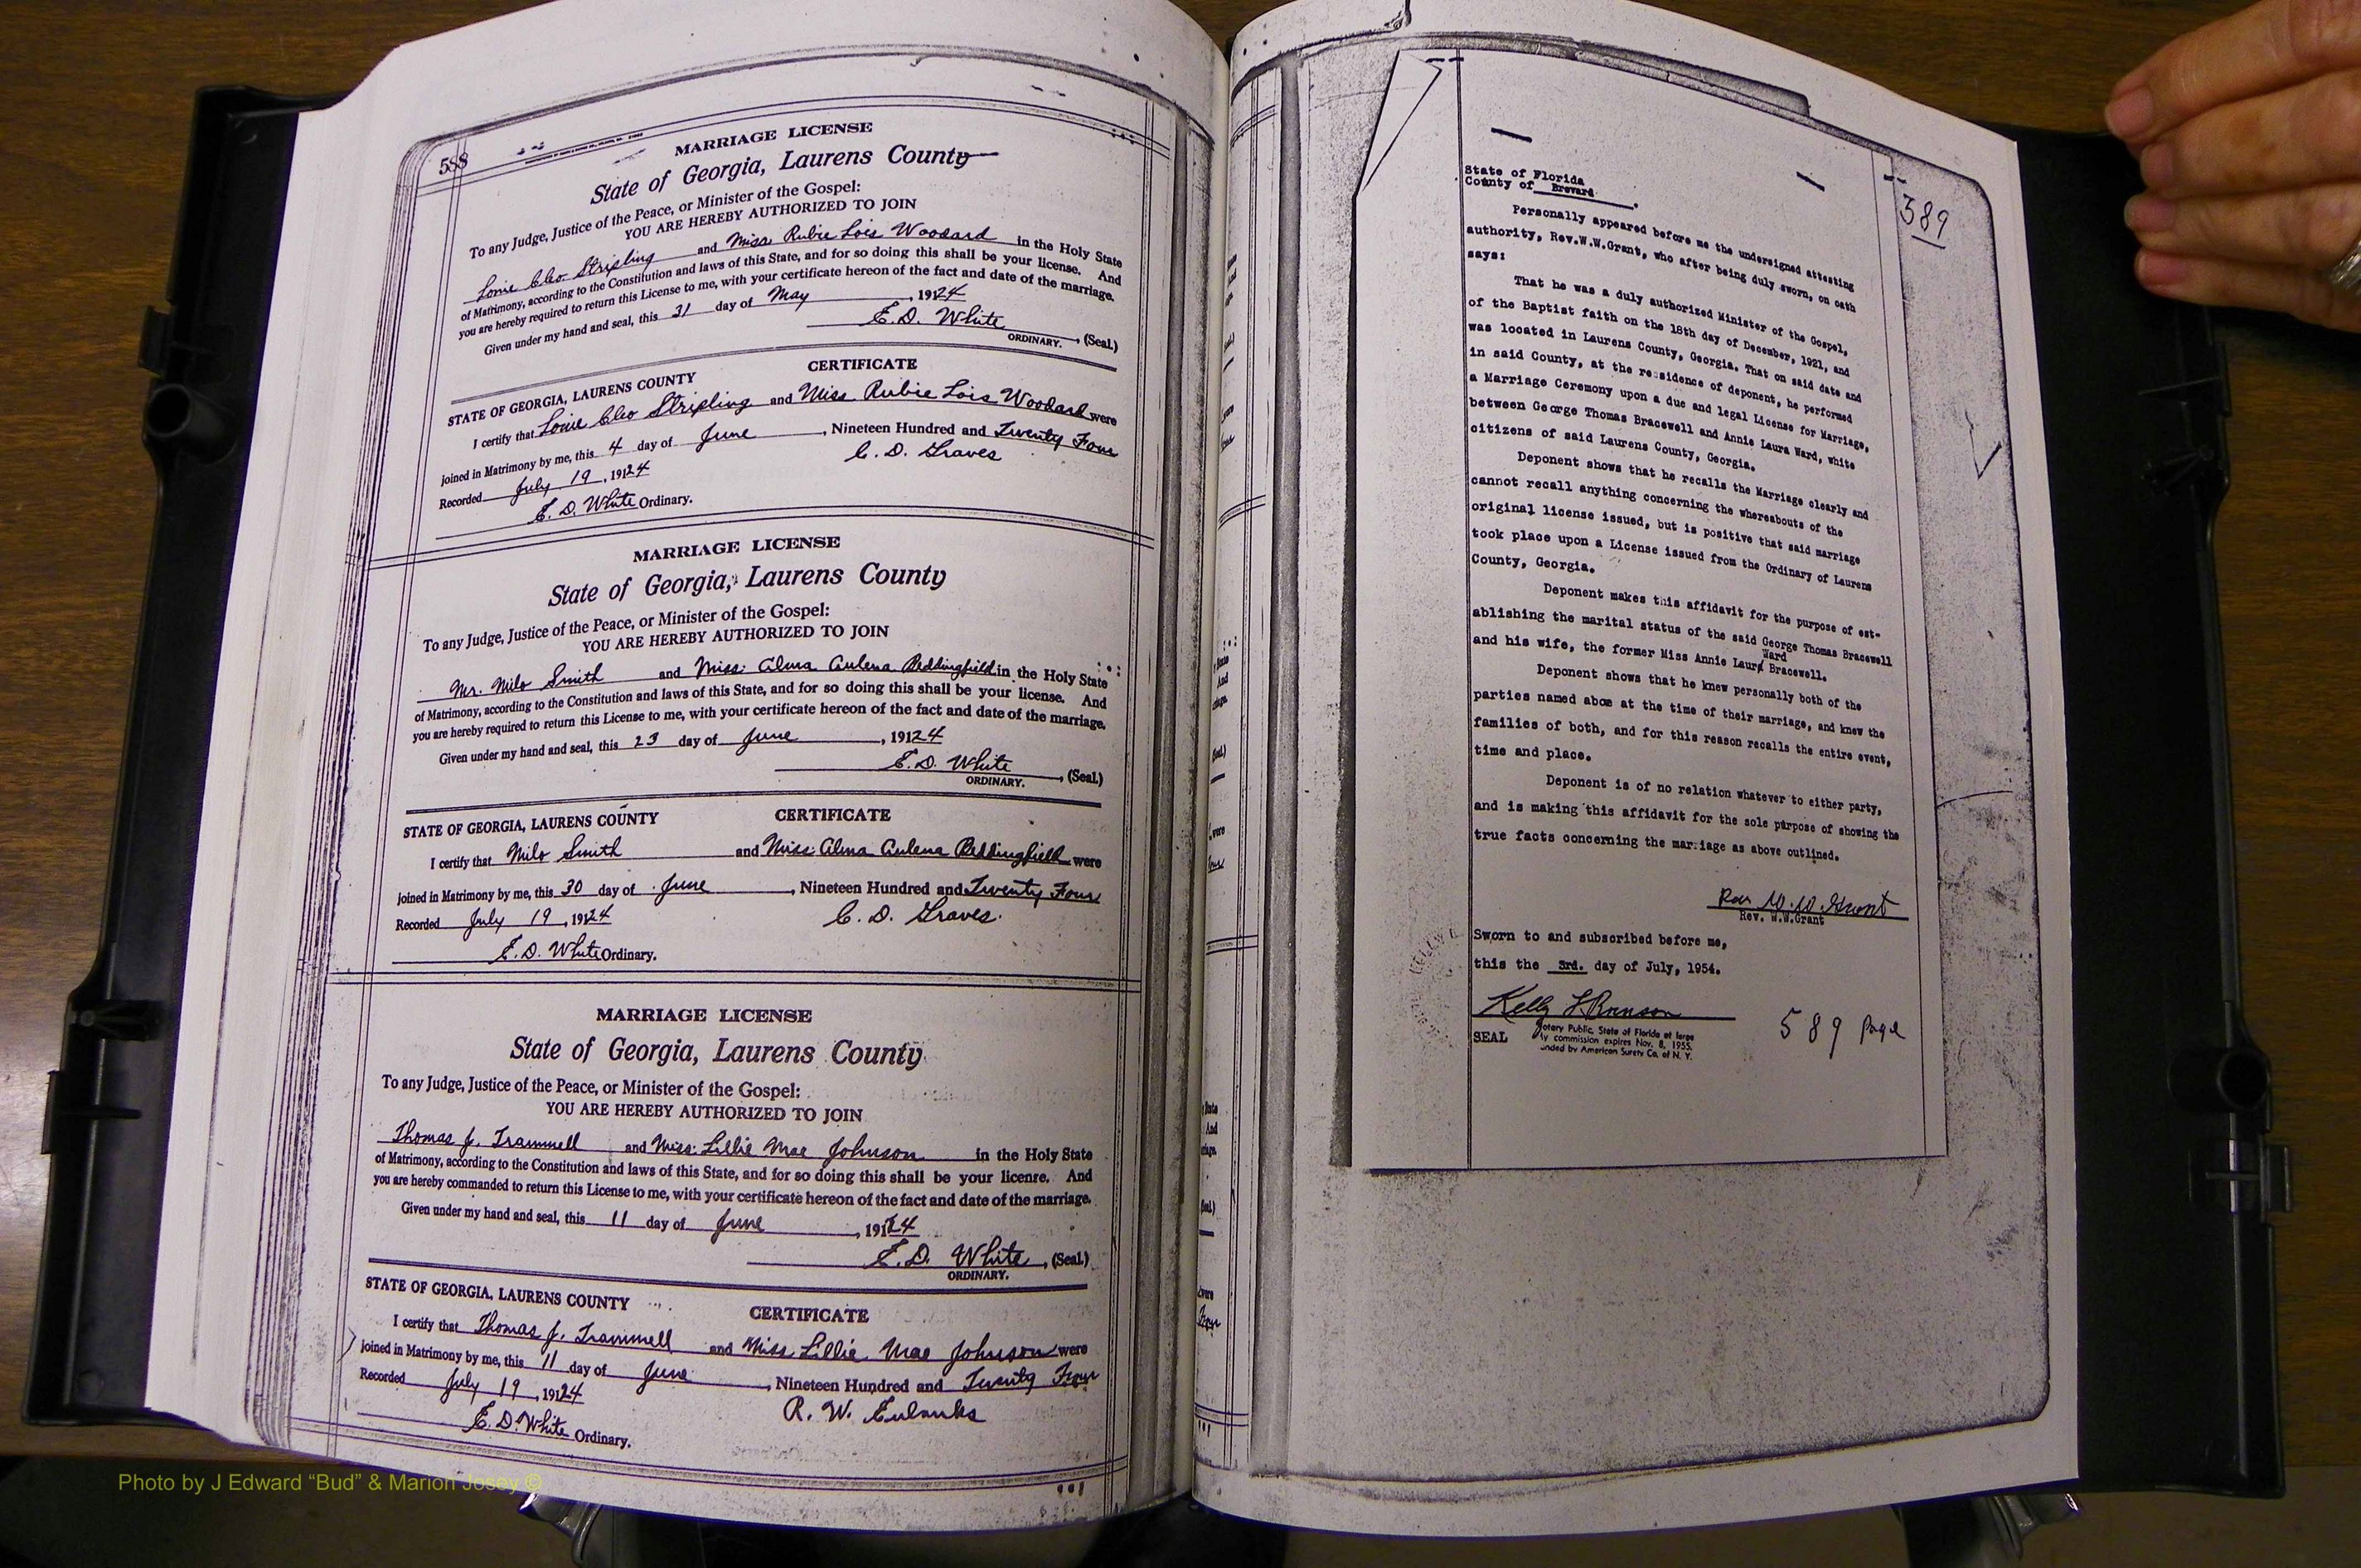 588
MARRIAGE LICENSE
State of Georgia, Laurens County
To any Judge, Justice of the Peace, or Minister of the Gospel:
YOU ARE HEREBY AUTHORIZED TO JOIN
Lonie Cleo Stripling and Miss. Rubie Lois Woodard in the Holy State
of Matrimony, according to the Constitution and laws of this State, and for so doing this shall be your license. And
you are hereby required to return this License to me, with your certificate hereon of the fact and date of the marriage.
Given under my hand and seal, this 31 day of May, 1924
E. D. White, (Seal.)
ORDINARY.
CERTIFICATE
STATE OF GEORGIA, LAURENS COUNTY
I certify that Lonie Cleo Stripling and Miss. Rubie Lois Woodard were
joined in Matrimony by me, this 4 day of June, Nineteen Hundred and Twenty Four
Recorded July 19, 1924 C. D. Graves
E. D. White Ordinary.
MARRIAGE LICENSE
State of Georgia, Laurens County
To any Judge, Justice of the Peace, or Minister of the Gospel:
YOU ARE HEREBY AUTHORIZED TO JOIN
Mr. Milo Smith and Miss: Alma Aulena Beddingfield in the Holy State
of Matrimony, according to the Constitution and laws of this State, and for so doing this shall be your license. And
you are hereby required to return this License to me, with your certificate hereon of the fact and date of the marriage.
Given under my hand and seal, this 23 day of June, 1924
E. D. White, (Seal.)
ORDINARY.
CERTIFICATE
STATE OF GEORGIA, LAURENS COUNTY
I certify that Milo Smith and Miss: Alma Aulena Beddingfield were
joined in Matrimony by me, this 30 day of June, Nineteen Hundred and Twenty Four
Recorded July 19, 1924 C. D. Graves.
E. D. White Ordinary.
MARRIAGE LICENSE
State of Georgia, Laurens County
To any Judge, Justice of the Peace, or Minister of the Gospel:
YOU ARE HEREBY AUTHORIZED TO JOIN
Thomas J. Trammell and Miss: Lillie Mae Johnson in the Holy State
of Matrimony, according to the Constitution and laws of this State, and for so doing this shall be your license. And
you are hereby commanded to return this License to me, with your certificate hereon of the fact and date of the marriage.
Given under my hand and seal, this 11 day of June, 1924
E. D. White, (Seal.)
ORDINARY.
STATE OF GEORGIA, LAURENS COUNTY
CERTIFICATE
I certify that Thomas J. Trammell and Miss Lillie Mae Johnson were
joined in Matrimony by me, this 11 day of June, Nineteen Hundred and Twenty Four
Recorded July 19, 1924 R. W. Eubanks
E. D. White Ordinary.
589
State of Florida
County of Brevard.
Personally appeared before me the undersigned attesting
authority, Rev.W.W.Grant, who after being duly sworn, on oath
says:
That he was a duly authorized Minister of the Gospel,
of the Baptist faith on the 18th day of December, 1921, and
was located in Laurens County, Georgia. That on said date and
in said County, at the residence of deponent, he performed
a Marriage Ceremony upon a due and legal License for Marriage,
between George Thomas Bracewell and Annie Laura Ward, white
citizens of said Laurens County, Georgia.
Deponent shows that he recalls the Marriage clearly and
cannot recall anything concerning the whereabouts of the
original license issued, but is positive that said marriage
took place upon a License issued from the Ordinary of Laurens
County, Georgia.
Deponent makes this affidavit for the purpose of est-
ablishing the marital status of the said George Thomas Bracewell
Ward
and his wife, the former Miss Annie Laura Bracewell.
Deponent shows that he knew personally both of the
parties named above at the time of their marriage, and knew the
families of both, and for this reason recalls the entire event,
time and place.
Deponent is of no relation whatever to either party,
and is making this affidavit for the sole purpose of showing the
true facts concerning the marriage as above outlined.
Rev W.W. Grant
Rev. W.W.Grant
Sworn to and subscribed before me,
this the 3rd. day of July, 1954.
SEAL
otary Public, State of Florida at large
y commission expires Nov. 8, 1955.
nded by American Surety Co. of N. Y.
589 Page
Photo by J Edward “Bud” & Marion Josey ©